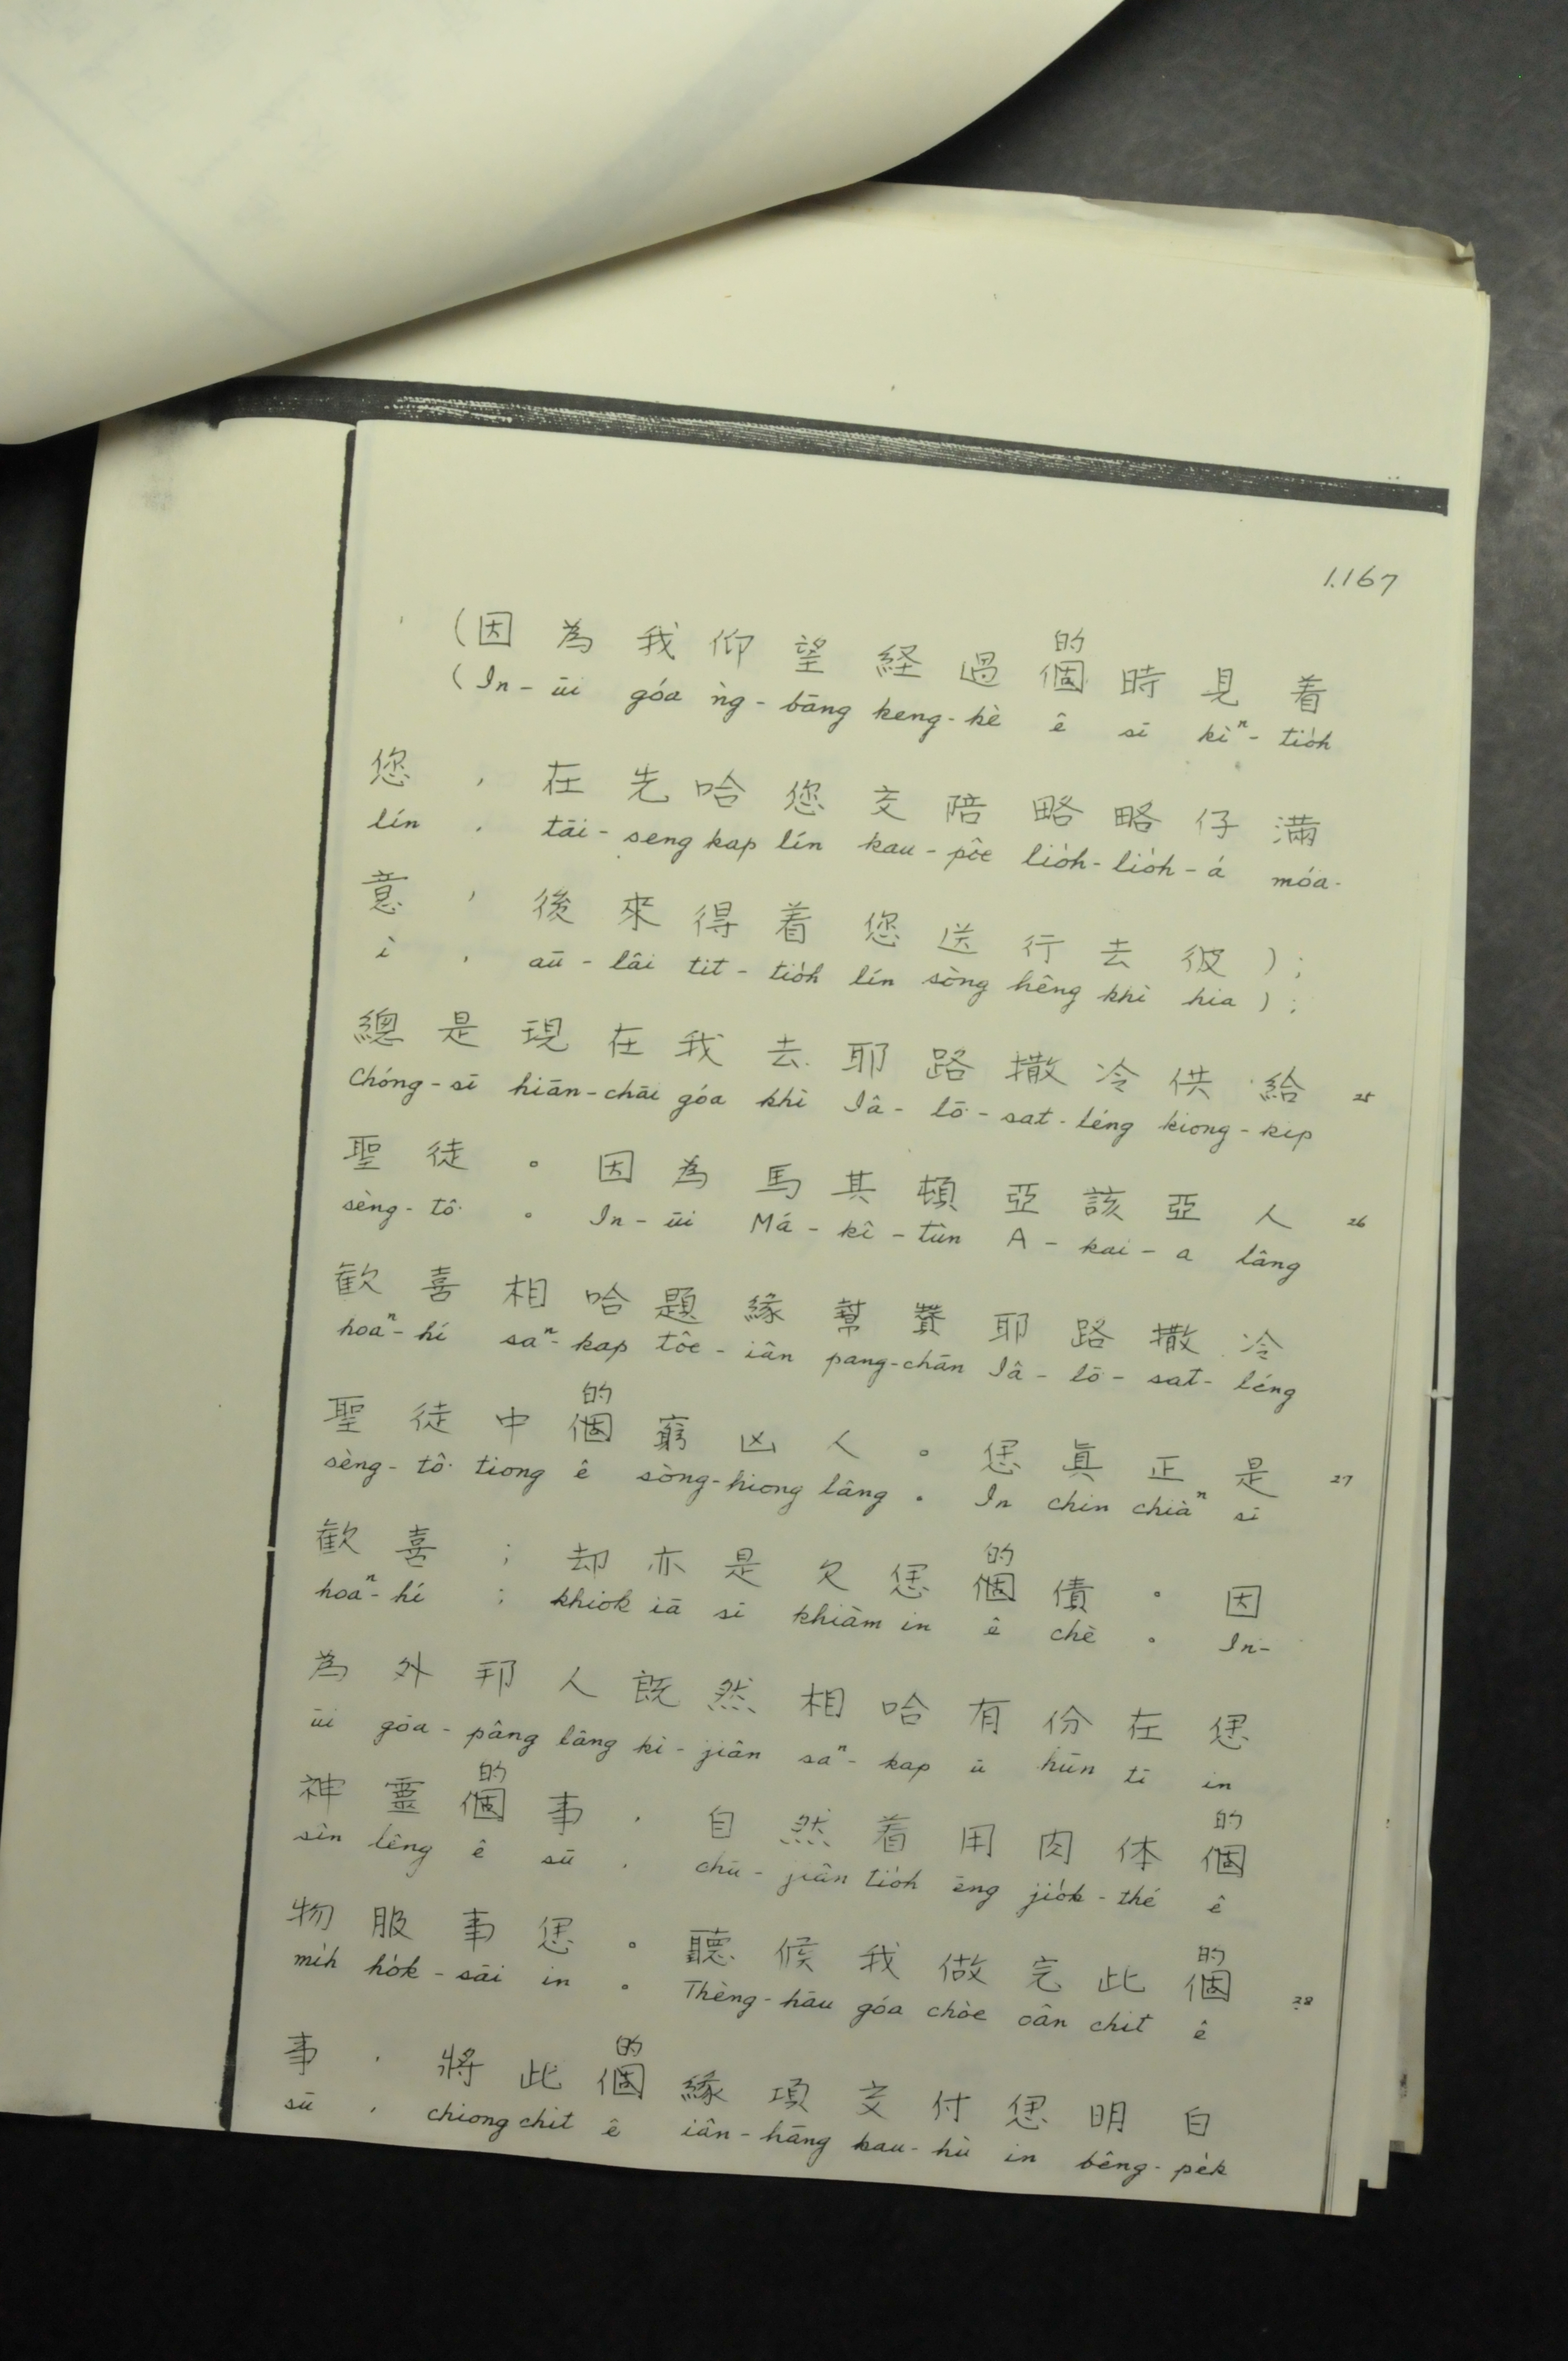 1.167
的
(因為我仰望経過個時見着
(In-ūi góa ǹg-bāng keng-kè ê sī kìⁿ-tio̍h
您,在先哈您交陪略略仔滿
lín , tāi-seng kap lín kau-pôe lio̍h-lio̍h-á móa-
意,後來得着您送行去彼);
ì , aū-lâi tit-tio̍h lín sòng hêng khì hia );
總是現在我去耶路撒冷供給 25
Chóng-sī hiān-chāi góa khì Iâ-lō-sat-léng kiong-kip
聖徒。因為馬其頓亞該亞人 26
sèng-tô͘ 。 In-ūi Má-kî-tùn A-kai-a lâng
歡喜相哈題緣幫賛耶路撒冷
hoaⁿ-hí saⁿ-kap tôe-iân pang-chān Iâ-lō-sat-léng
的
聖徒中個窮凶人。𪜶真正是 27
sèng-tô͘ tiong ê sòng-hiong lâng 。 In chin chiàⁿ sī
的
歡喜;却亦是欠𪜶個債。因
hoaⁿ-hí ; khiok iā sī khiàm in ê chè 。 In-
為外邦人既然相哈有份在𪜶
ūi gōa-pâng lâng kì-jiân saⁿ-kap ū hūn tī in
的 的
神靈個事,自然着用肉体個
sîn lêng ê sū , chū-jiân tio̍h ēng jio̍k-thé ê
的
物服事𪜶。聽候我做完此個 28
mi̍h ho̍k-sāi in 。 Thèng-hāu góa chòe oân chit ê
的
事,將此個緣項交付𪜶明白
sū , chiong chit ê iân-hāng kau-hù in bêng-pe̍k